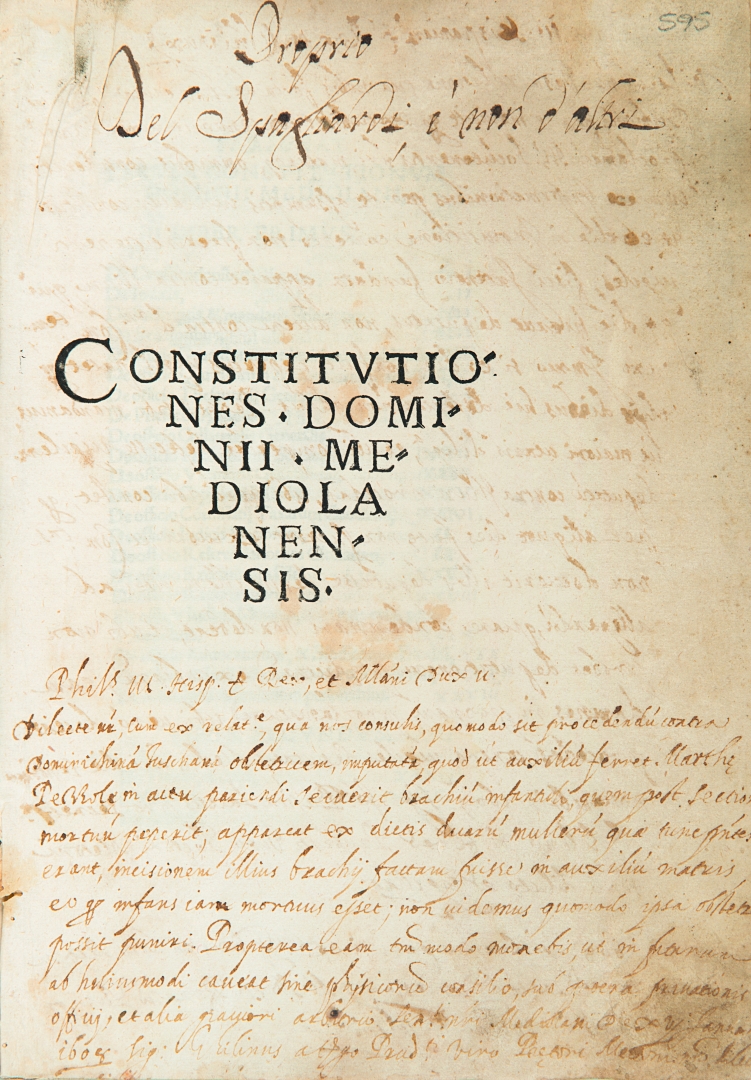 595
Proprio
Del Spagliardi é non d'altri
CONSTITVTIO⸗
NES · DOMI⸗
NII · ME⸗
DIOLA
NEN⸗
SIS.
Phil.s III. Hisp. Rex, et Mĺani Dux
Dilecte nr̃, cum ex relat.e, qua nos consulis, quomodo sit procedendú contra
obstetricem, imputatá quod ut auxiliú ferret Marthę
in actu pariendi secuerit brachiú infantis, quem post section
mortuú peperit, appareat ex dictis duarú mulierú, quæ tunc pn̄tes
erant, incisionem illius brachij factam fuisse in auxiliú matris
eo infans iam mortuus esset; non uidemus quomodo ipsa obstetr
possit puniri. Propterea eam tm̃ modo monebis, ut in futurum
ab huiusmodi caueat sine physicorum consilio, sub poena priuationis
officij, et alia grauiori arbitrio
sig: